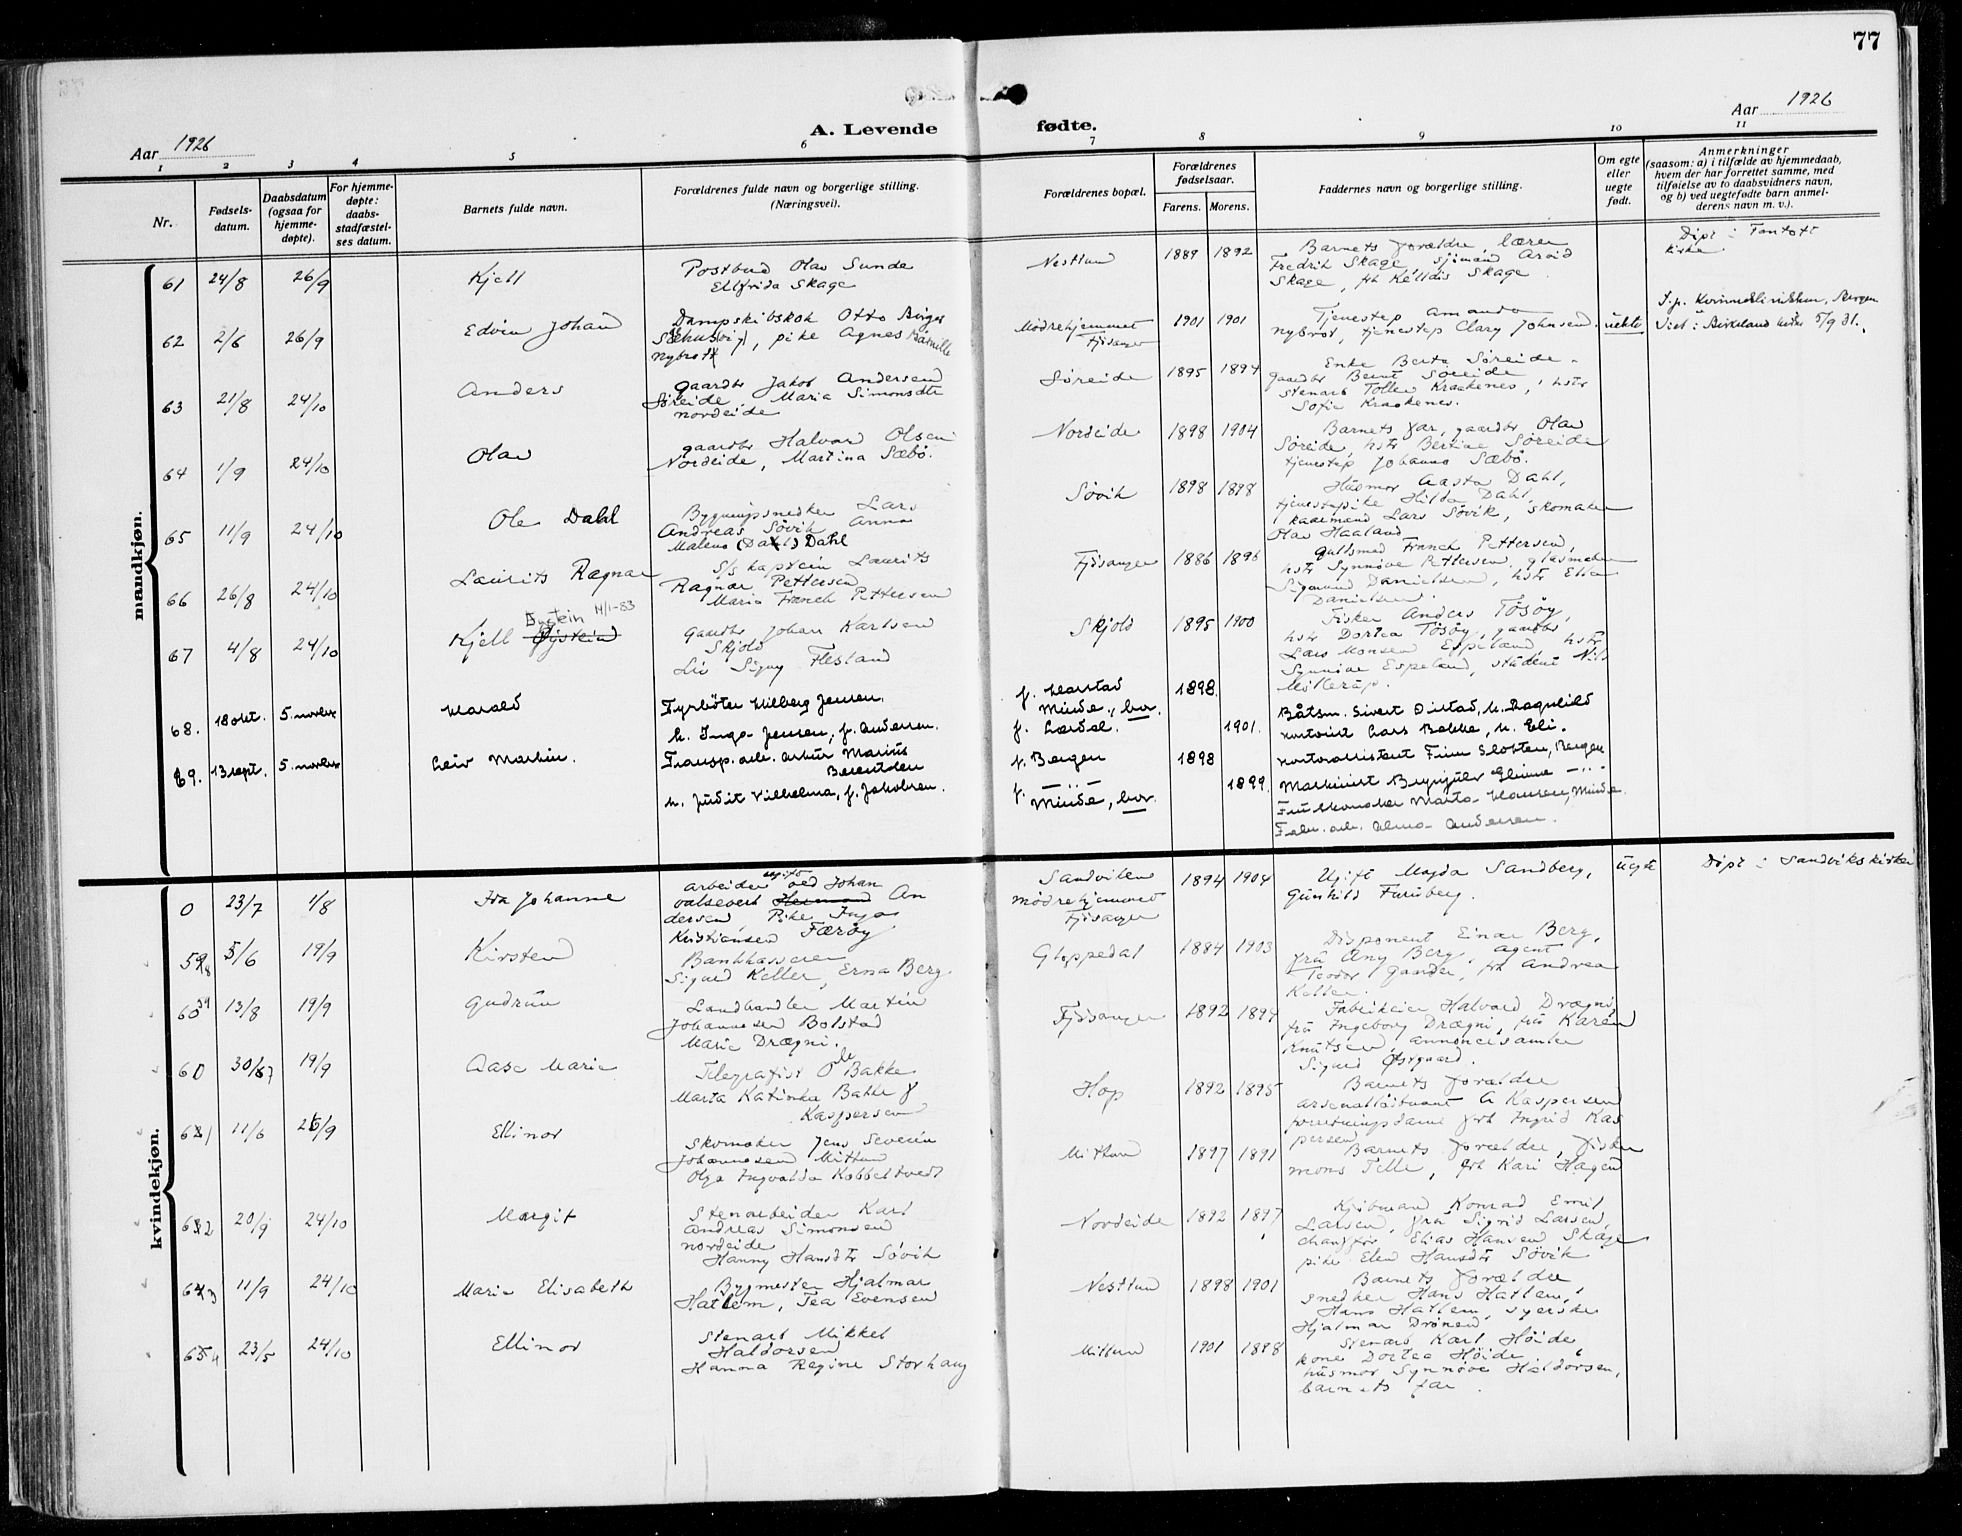 77
Aar 1926
A. Levende fødte.
Aar 1926
1 2 3 4 5 6 7 8 9 10 11
Nr.
Fødsels-
datum.
Daabsdatum
(ogsaa for
hjemme-
døpte).
For hjemme-
døpte:
daabs-
stadfæstel-
ses datum.
Barnets fulde navn.
Forældrenes fulde navn og borgerlige stilling.
(Næringsvei).
Forældrenes bopæl.
Forældrenes
fødselsaar.
Farens. Morens.
Faddernes navn og borgerlige stilling.
Om egte
eller
uegte
født.
Anmerkninger
(saasom: a) i tilfælde av hjemmedaab,
hvem der har forrettet samme, med
tilføielse av to daabsvidners navn,
og b) ved uegtefødte barn anmel-
derens navn m. v.).
mandkjøn.
61 24/8 26/9 Kjell
Postbud Olav Sunde
Ellfrida Skage
Nesttun 1889 1892
Barnets forældre, lærer
Fredrik Skage, sjømand Arvid
Skage, frk Kelldis Skage
Døpt i Fantoft
kirke
62 2/6 26/9 Edvin Johan
Dampskibskok Otto Birger
Sæhus(vig), pike Agnes
Nybrøt
Mødrehjemmet
Fjøsanger
1901 1901
Tjenestep Amanda
Nybrøt, tjenestep Clary Johnsen.
uekte
F.p. Kvinneklinikken, Bergen
Viet i Birkeland kirke 5/9 31.
63 21/8 24/10 Anders
Gaardbr Jakob Andersen
Søreide, Maria Simonsdtr
Nordeide
Søreide 1895 1894
Enke Berta Søreide
gaardbr Bernt Søreide
stenarb Tollev Kraakenes, hstr
Sofie Kraakenes.
64 1/9 24/10 Olav
gaardbr Halvard Olsen
Nordeide, Martina Sæbø.
Nordeide 1898 1904
Barnets far, gaardbr Olav
Søreide, hstr Bertine Søreide
tjenestep Johanna Sæbø.
65 11/9 24/10 Ole Dahl
Bygningssnedker Lars
Andreas Søvik Anna
Malene (Dahl) Dahl
Søvik 1898 1898
Husmor Aasta Dahl,
tjenestepike Hilda Dahl,
kaarmand Lars Søvik, skomaker
Olav Haaland
66 26/8 24/10 Laurits Ragnar
S/s kaptein Laurits
Ragnar Pettersen
Maria Franck Pettersen
Fjøsanger 1886 1896
Gullsmed Franck Pettersen,
hstr Synnøve Pettersen, glasmaker
Sigmund Danielsen, hstr Ellen
Danielsen.
67 4/8 24/10 Kjell Øystein Eystein 14/1-83
Gaardbr Johan Karlsen
Skjold
Liv Signy Flesland
Skjold 1895 1900
Fisker Anders Tøsøy,
hstr Dortea Tøsøy, gaardbr
Lars Monsen Espeland, hstr
Synnøve Espeland, student Nils
68. 18 okt. 5. novbr Harald
Fyrbøter Hilberg Jensen.
h. Inga Jensen, f. Andersen.
f. Harstad
Minde, bor.
f. Lærdal.
1898. 1901.
Båtsm. Sivert Oristad, h. Ragnhild
Kontorist Lars Bakke, h. Eli.
69. 13 sept. 5. novbr Leiv Martin.
Transp. arb. Artur Marius
Berentsen
h. Judit Vilhelma, f. Jakobsen.
f. Bergen
f. — " —
Minde, bor.
1898 1899.
Kontorassistent Finn Slotten, Bergen
Maskinist Brynjulv Glimme — " —
Fru Skomaker Marta Hansen, Minde
Fabr. arb. Alma Andersen.
kvindekjøn.
0 23/7 1/8 Ida Johanne
arbeider ugift ved Johan
valseverk Hermann An
dersen Pike Inga
Kristiansen Færøy
Sandviken
mødrehjemmet
Fjøsanger
1894 1904
Ugift Magda Sandberg,
Gunhild Furuberg.
ugte
Døpt i Sandvikskirken
58 5/6 19/9 Kirsten
Bankkasserer
Sigurd Keller, Erna Berg.
Gloppedal 1884 1903
Disponent Einar Berg,
fru Any Berg, agent
Teodor Gaarder, frk Andrea
Keller.
59 13/8 19/9 Gudrun
Landhandler Martin
Johannesen Bolstad
Marie Drægni.
Fjøsanger 1892 1894
Fabrikeier Halvard Drægni,
fru Ingeborg Drægni, fru Karen
Knutsen, annoncesamler
Sigurd Østgaard.
60 30/7 19/9 Aase Marie
Telegrafist Ole Bakke
Marta Katinka Bakke f
Kaspersen
Hop 1892 1895
Barnets forældre
arsenalløitnant A Kaspersen
forretningsdame frk Ingrid Kas
persen
61 11/6 26/9 Ellinor
Skomaker Jens Severin
Johannesen Mittun
Olga Ingvalda Kobbeltvedt
Mittun 1897 1891
Barnets forældre, fisker
Mons Telle, frk Kari Hagen
62 20/9 24/10 Margit
Stenarbeider Karl
Andreas Simonsen
Nordeide
Hanny Hansdtr Søvik
Nordeide 1892 1897
Kjøbmand Konrad Emil
Larsen, fru Sigrid Larsen,
chauffør Elias Hansen Skage
pike Elen Hansdtr Søvik
63 11/9 24/10 Marie Elisabeth
Bygmester Hjalmar
Hatlem, Tea Evensen
Nesttun 1898 1901
Barnets forældre
snedker Hans Hatlem,
Hans Hatlem, syerske
Hjalmar Drønen
64 23/5 24/10 Ellinor
Stenarb Mikkel
Haldorsen
Hanna Regine Storhaug
Mittun 1901 1898
Stenarb Karl Høide
kone Dortea Høide,
husmor Synnøve Haldorsen,
barnets far